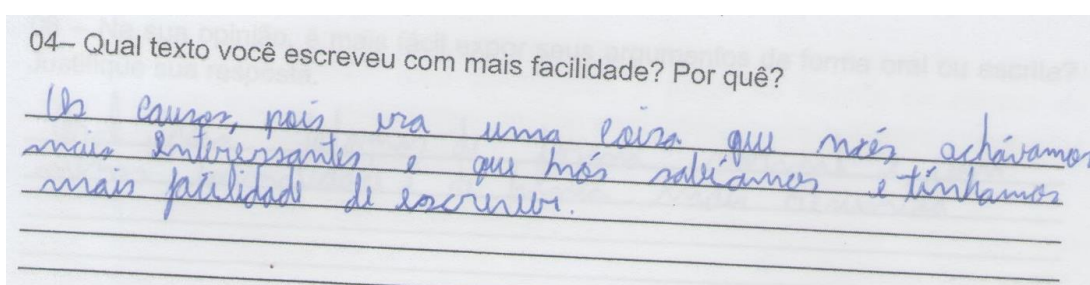 04– Qual texto você escreveu com mais facilidade? Por quê?
Os causos, pois era uma coisa que nós achávamos
mais interessantes e que nós sabíamos e tínhamos
mais facilidade de escrever.